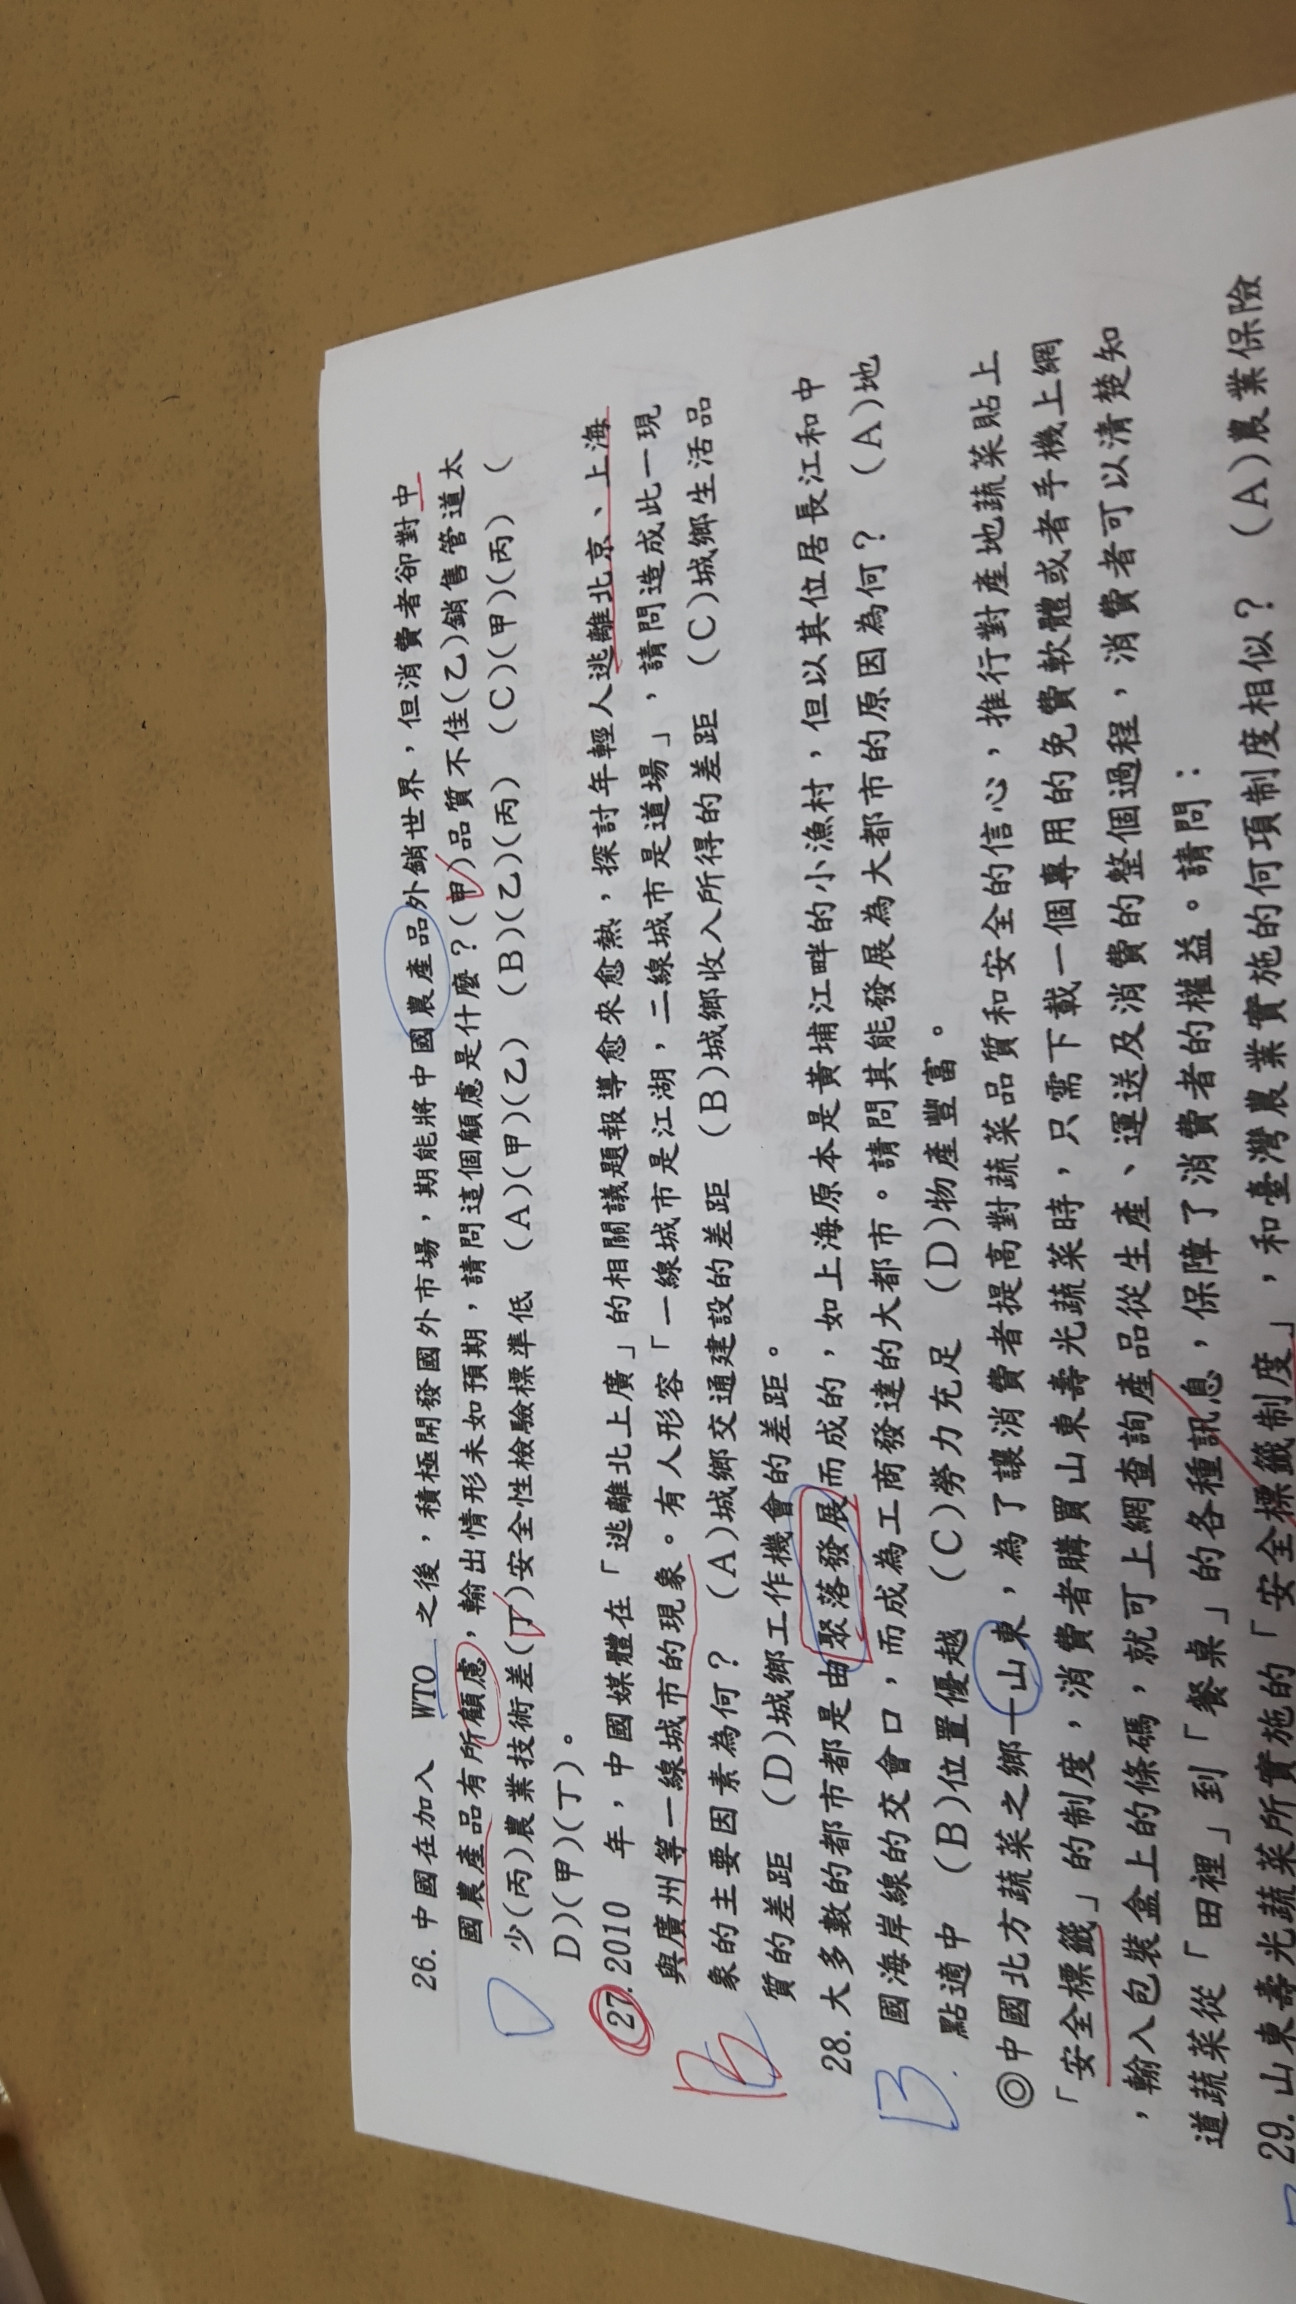 26. 中國在加入 WTO 之後，積極開發國外市場，期能將中國農產品外銷世界，但消費者卻對中
國農產品有所顧慮，輸出情形未如預期，請問這個顧慮是什麼？(甲)品質不佳(乙)銷售管道太
少(丙)農業技術差(丁)安全性檢驗標準低 (A)(甲)(乙) (B)(乙)(丙) (C)(甲)(丙) (
D)(甲)(丁)。
D
27. 2010 年，中國媒體在「逃離北上廣」的相關議題報導愈來愈熱，探討年輕人逃離北京、上海
與廣州等一線城市的現象。有人形容「一線城市是江湖，二線城市是道場」，請問造成此一現
象的主要因素為何？ (A)城鄉交通建設的差距 (B)城鄉收入所得的差距 (C)城鄉生活品
質的差距 (D)城鄉工作機會的差距。
B
28. 大多數的都市都是由聚落發展而成的，如上海原本是黃埔江畔的小漁村，但以其位居長江和中
國海岸線的交會口，而成為工商發達的大都市。請問其能發展為大都市的原因為何？ (A)地
點適中 (B)位置優越 (C)勞力充足 (D)物產豐富。
B
◎中國北方蔬菜之鄉—山東，為了讓消費者提高對蔬菜品質和安全的信心，推行對產地蔬菜貼上
「安全標籤」的制度，消費者購買山東壽光蔬菜時，只需下載一個專用的免費軟體或者手機上網
，輸入包裝盒上的條碼，就可上網查詢產品從生產、運送及消費的整個過程，消費者可以清楚知
道蔬菜從「田裡」到「餐桌」的各種訊息，保障了消費者的權益。請問：
29. 山東壽光蔬菜所實施的「安全標籤制度」，和臺灣農業實施的何項制度相似？ (A)農業保險